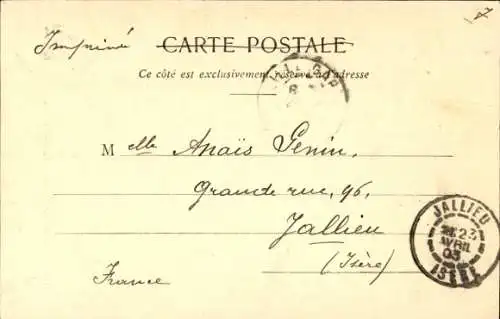 7
Imprimé
CARTE POSTALE
Ce côté est exclusivement réservé à l'adresse
Mlle Anaïs Genin,
Grande rue, 96,
Jallieu
(Isère)
France
JALLIEU
23
AVRIL
03
ISÈRE